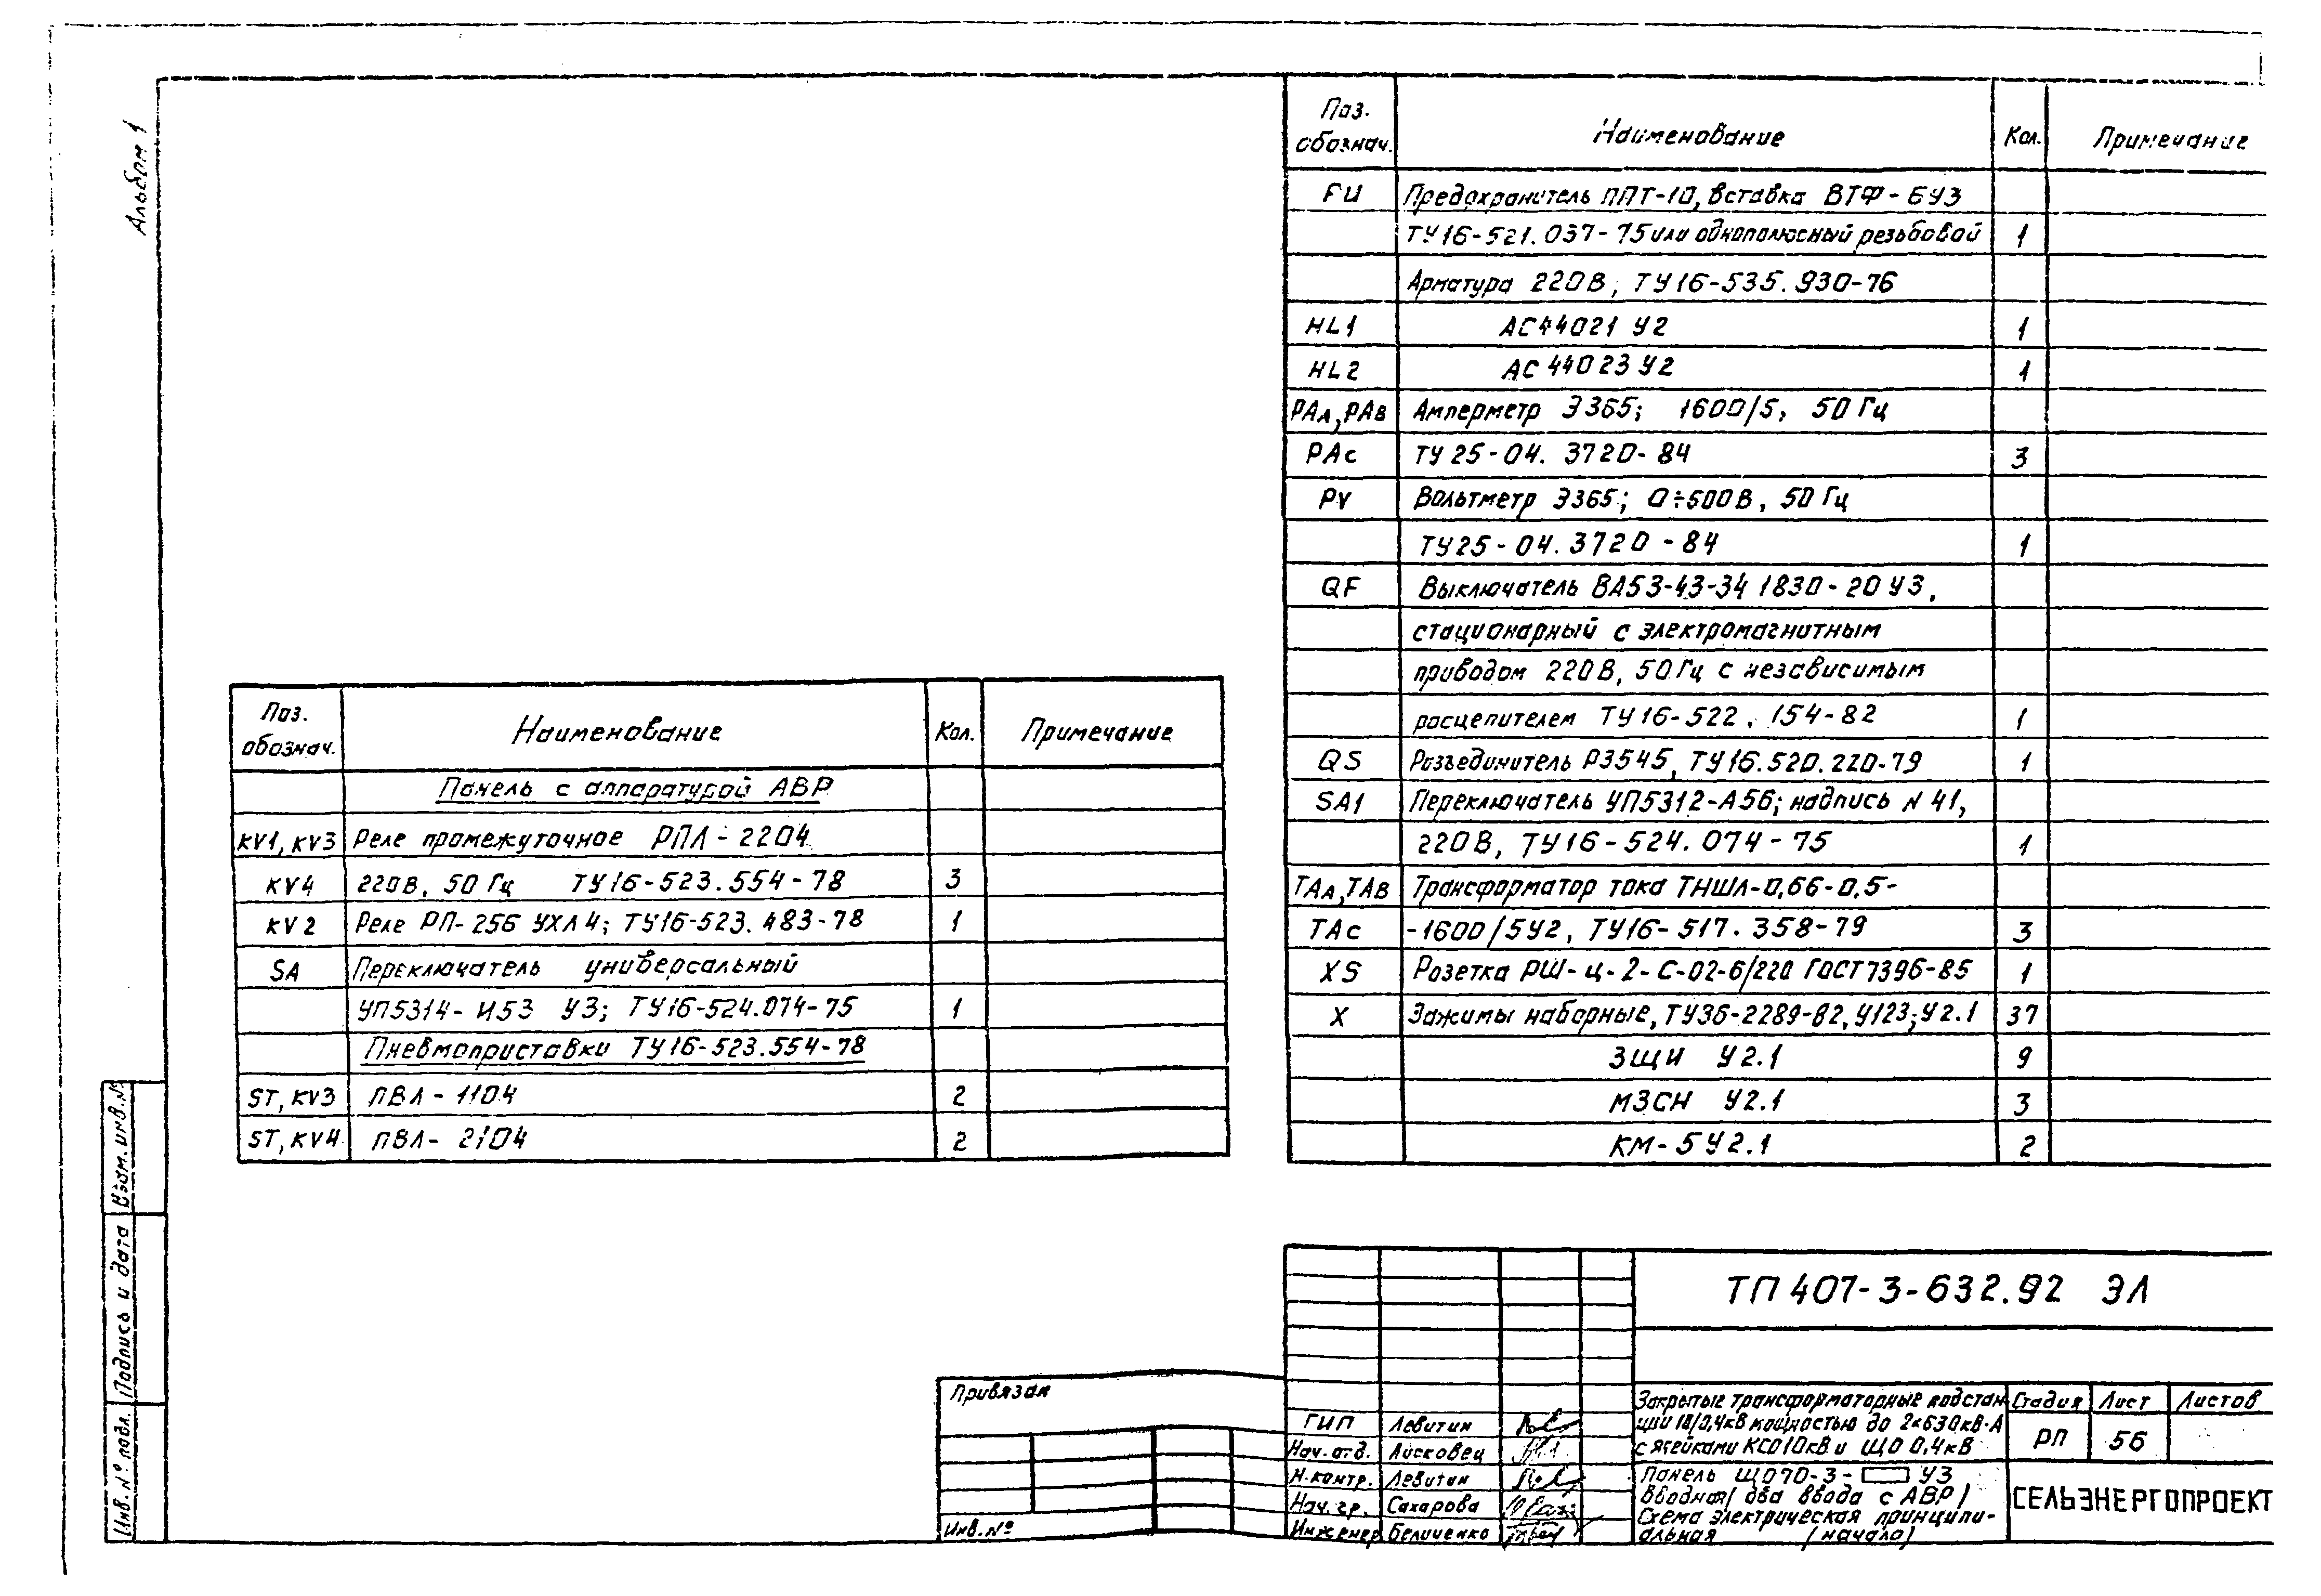 Альбом 1
Поз. обознач. Наименование Кол. Примечание
FU Предохранитель ППТ-10, вставка ВТФ-6У3
ТУ16-521.037-75 или однополюсный резьбовой 1
Арматура 220В; ТУ16-535.930-76
HL1 АС44021 У2 1
HL2 АС44023У2 1
PAA, PAB Амперметр Э365; 1600/5, 50Гц
PAC ТУ25-04.3720-84 3
PV Вольтметр Э365; 0÷500В, 50Гц
ТУ25-04.3720-84 1
QF Выключатель ВА53-43-34 1830-20У3,
стационарный с электромагнитным
приводом 220В, 50Гц с независимым
расцепителем ТУ16-522.154-82 1
QS Разъединитель Р3545, ТУ16.520.220-79 1
SA1 Переключатель УП5312-А56; надпись N 41,
220В, ТУ16-524.074-75 1
TAA, TAB Трансформатор тока ТНШЛ-0,66-0,5-
TAC -1600/5У2, ТУ16-517.358-79 3
XS Розетка РШ-ц-2-С-02-6/220 ГОСТ7396-85 1
X Зажимы наборные, ТУ36-2289-82, У123; У2.1 37
ЗЩИ У2.1 9
МЗСН У2.1 3
КМ-5У2.1 2
Поз. обознач. Наименование Кол. Примечание
Панель с аппаратурой АВР
KV1, KV3 Реле промежуточное РПЛ-2204
KV4 220В, 50Гц ТУ16-523.554-78 3
KV2 Реле РП-256 УХЛ4; ТУ16-523.483-78 1
SA Переключатель универсальный
УП5314-И53 У3; ТУ16-524.074-75 1
Пневмоприставки ТУ16-523.554-78
ST, KV3 ПВЛ-1104 2
ST, KV4 ПВЛ-2104 2
Взам. инв. №
Подпись и дата
Инв. № подл.
Привязан
Инв. №
ТП 407-3-632.92 ЭЛ
ГИП Левитин
Нач. отд. Лисковец
Н.контр. Левитин
Нач. гр. Сахарова
Инженер Беличенко
Закрытые трансформаторные подстан
ции 10/0,4кВ мощностью до 2×630кВ·А
с ячейками КСО10кВ и ЩО 0,4кВ
Стадия Лист Листов
РП 56
Панель ЩО70-3- У3
вводная/два ввода с АВР/
Схема электрическая принципи-
альная (начало)
СЕЛЬЭНЕРГОПРОЕКТ